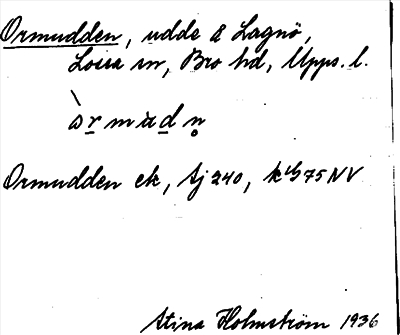 Ormudden, udde å Lagnö,
Lossa sn, Bro hd, Upps. l.
Ormudden ek, Sj 240,
Stina Holmström 1936